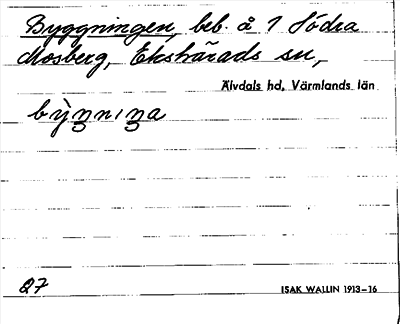 Byggningen, beb. å 1 Södra
Mosberg, Ekshärads sn,
Älvdals hd, Värmlands län
bỳŋnıŋa
27
ISAK WALLIN 1913-16